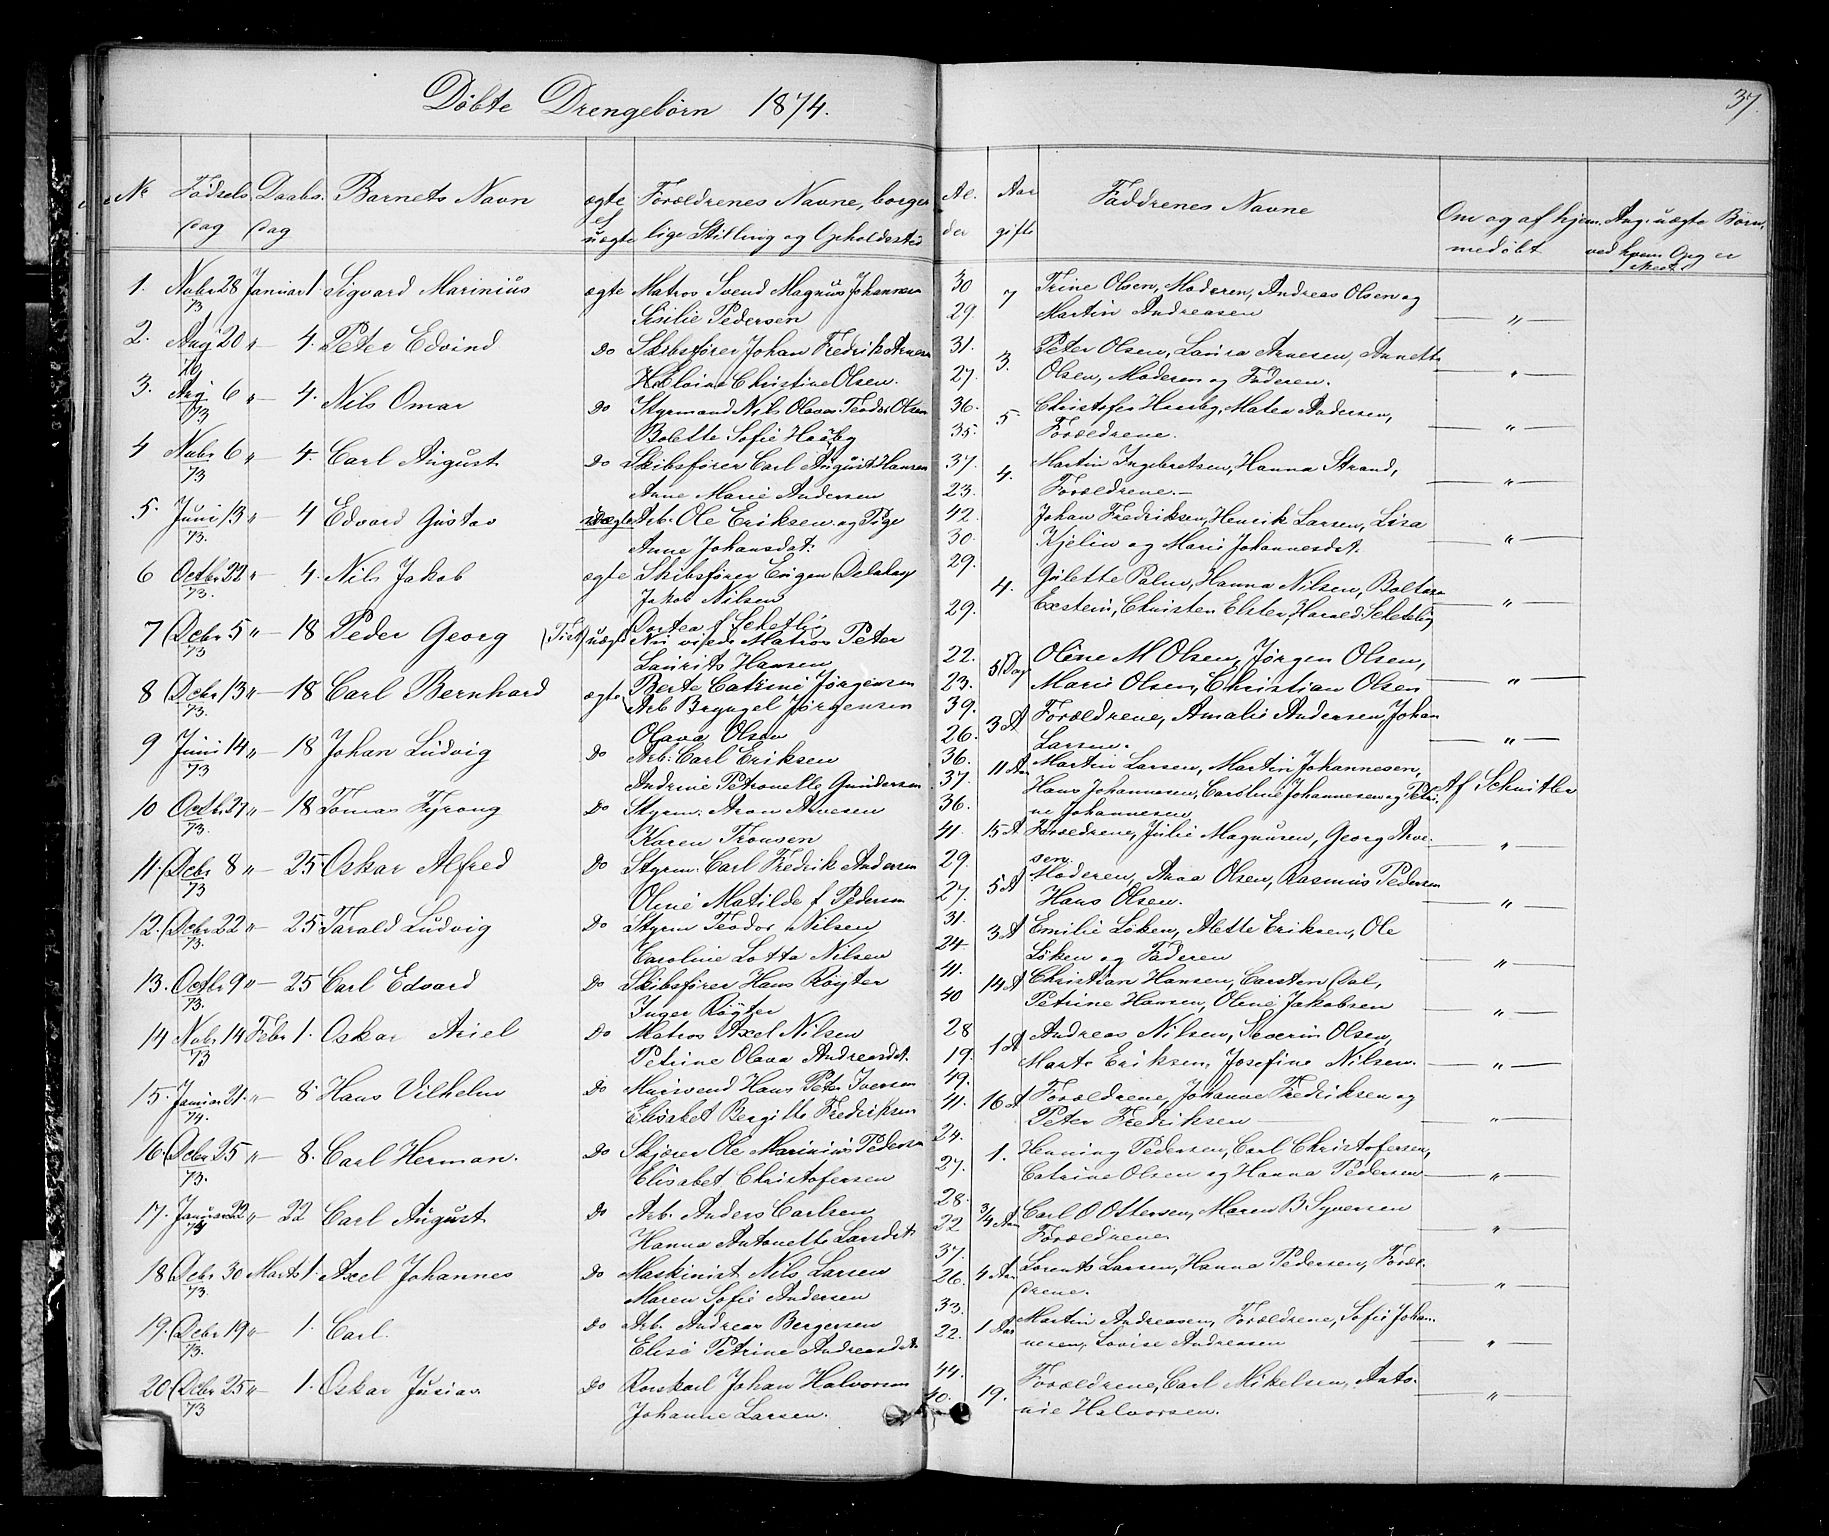 Döbte Drengebørn 1874.
37.
No Födsels Daabs Barnets Navn ægte Forældrenes Navne, borger Al- Aar Faddrenes Navne Om og af hjem- Ang. uægte Børn,
dag dag el uægte lige Stilling og Opholdssted der gifte medøbt ved hvem Opg er
1. Nobr 28 Januar 1. Sigvard Marinius ægte Matros Svend Magnus Johannesen 30 7 Trine Olsen, Moderen, Andreas Olsen og
73 Sisilie Pedersen 29. Martin Andreasen — " —
2. Aug 20 " 4. Peter Edvind Do Skibsfører Johan Fredrik Arnesen 31. 3. Peter Olsen, Laura Arnesen, Annette
Christine Olsen. 27. Olsen, Moderen og Faderen. — " —
3. Aug 6 " 4. Nils Omar Do Styrmand Nils Olavas Teodor Olsen 36. 5 Christofer Haaby, Matea Andersen,
73 Bolette Sofie Haaby 35. Forældrene. — " —
4 Nobr 6 " 4. Carl August Do Skibsfører Carl August Hansen 37. 4. Martin Ingebretsen, Hanna Strand,
73 Anne Marie Andersen 23. Forældrene. — — " —
5. Juni 13 " 4 Edvard Gustav uægte Arb. Ole Eriksen og Pige 42. Johan Fredriksen, Henrik Larsen, Lisa
73. Anne Johansdat: 30. Kjelin og Marie Johannesdat. — " —
6 Octbr 22 " 4. Nils Jakob ægte Skibsfører Eugen 29. 4. Julette Palm, Hanna Nilsen,
73. Jakob Nilsen 29. Exstein, Christen Elster, Harald Schetelig — " —
Dortea f Schetlig
7 Debr 5 " 18 Peder Georg uægte Nu viede Matros Peter 22. 5 Dag Olene M Olsen, Jørgen Olsen,
73 Laurits Hansen 23. Marie Olsen, Christian Olsen — " —
Berte Catrine Jørgensen
8 Debr 13 " 18 Carl Bernhard ægte Arb Jørgensen 39. 3 A Forældrene, Amalie Andersen, Johan
73. Olava Olsen 26. Larsen. — " —
9 Juni 14 " 18 Johan Ludvig Do Arb: Carl Eriksen 36. 11 Aar Martin Larsen, Martin Johannesen,
73 Andrine Petronelle Gundersen 37. Hans Johannesen, Caroline Johannesen og Petri- Af Schnitler
ne Johannesen
10 Octb. 27 " 18 Tomas Do Styrm. Aron 36. 41. 15 A Forældrene, Julie Magnusen, Georg
73. Karen 29. sen. — " —
11. Debr 8 " 25. Oskar Alfred Do Styrm. Carl Fredrik Andersen 5 A Moderen, Anna Olsen, Rasmus Pedersen
73 Oline Matilde f Pedersen 27. Hans Olsen. — " —
12. Debr 22 " 25 Tarald Ludvig Do Styrm Teodor Nilsen 31. 3 A Emilie Løken, Alette Eriksen, Ole
73. Caroline Lotta Nilsen 24. Løken og Faderen — " —
13. Octbr 9 " 25 Carl Edvard Do Skibsfører Hans Røyter 41. 14 A Christian Hansen, Carsten Dal,
73. Inger Røyter 40 Petrine Hansen, Oline Jakobsen — " —
14 Nobr 14 Febr 1. Oskar Ariel Do Matros Axel Nilsen 28 1 A Andreas Nilsen, Severin Olsen,
73 Petrine Olava Andreasdt. 19. Marte Eriksen, Josefine Nilsen. — " —
15. Januar 21. " 8. Hans Vilhelm Do Hans Peter Iversen 49. 16 A Forældrene, Johanne Fredriksen og
74. Elisabet Bergitte Fredriksen 41. Peter Fredriksen — " —
16. Debr 25 " 8. Carl Herman. Do Ole Marinius Pedersen 24. 1. Henning Pedersen, Carl Christofersen,
73. Elisabet Christofersen 27. Catrine Olsen og Hanna Pedersen — " —
17. Januar 22 " 22 Carl August Do Arb. Anders Carlsen 28. 3/4 Aar Carl O Ottersen, Maren B Syversen
74 Hanna Antonette Larsdt. 22 Forældrene. — " —
18 Debr 30 Marts 1. Axel Johannes Do Maskinist Nils Larsen 37. 4 Aar Lorents Larsen, Hanna Pedersen, Foræl-
73. Maren Sofie Andersen 26. drene. — " —
19. Debr 19 " 1. Carl. Do Arb. Andreas Bergersen 33. 1 Aar Martin Andreasen, Forældrene, Sofie Johan-
73. Elise Petrine Andreasdt. 22. nesen, Lovise Andreasen — " —
20. Debr 25 " 1. Oskar Do Rorskarl Johan Halvorsen 44. 19. Forældrene, Carl Mikelsen, Anto-
73 Johanne Larsen. 40. nie Halvorsen. — " —